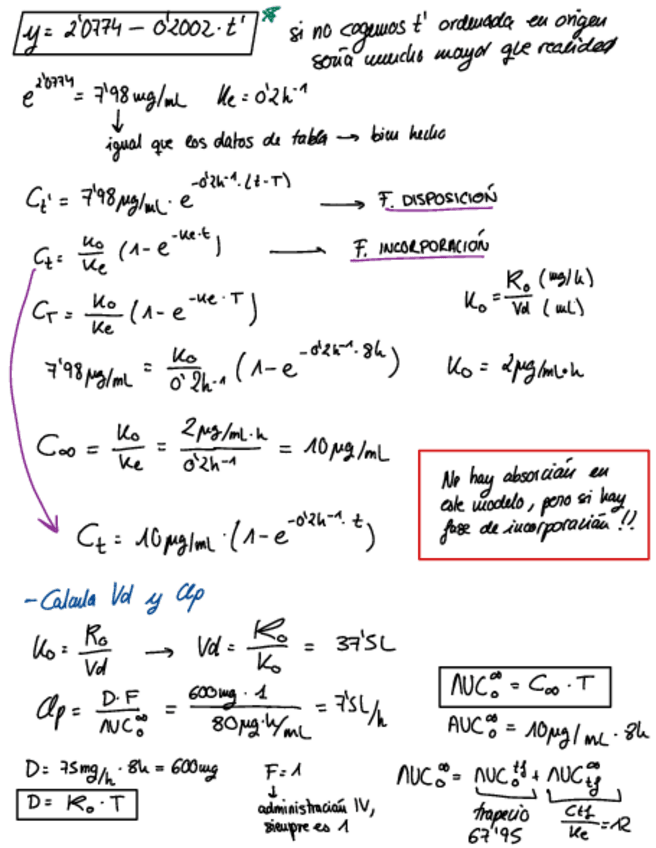 y = 2'0774 - 0'2002 · t' *
si no cogemos t' ordenada en origen
sería mucho mayor que realidad
e^2'0774 = 7'98 mg/mL   Ke = 0'2h^-1
↓
igual que los datos de tabla → bien hecho
Ct' = 7'98 µg/mL · e^-0'2h^-1·(t-T) → F. DISPOSICIÓN
Ct = K0/Ke (1 - e^-Ke·t) — F. INCORPORACIÓN
CT = K0/Ke (1 - e^-Ke·T)
K0 = R0 (mg/h) / Vd (mL)
7'98 µg/mL = K0/0'2h^-1 (1 - e^-0'2h^-1·8h)
K0 = 2µg/mL·h
C∞ = K0/Ke = 2µg/mL·h / 0'2h^-1 = 10 µg/mL
No hay absorción en
este modelo, pero si hay
fase de incorporación !!
Ct = 10 µg/mL · (1 - e^-0'2h^-1·t)
- Calcula Vd y Clp
K0 = R0/Vd → Vd = R0/K0 = 37'5L
Clp = D·F / AUC0^∞ = 600mg · 1 / 80 µg·h/mL = 7'5L/h
AUC0^∞ = C∞ · T
AUC0^∞ = 10µg/mL · 8h
D = 75mg/h · 8h = 600mg
D = R0 · T
F = 1
↓
administración IV,
siempre es 1
AUC0^∞ = AUC0^tf + AUCtf^∞
trapecio
67'95
Ctf/Ke = 12